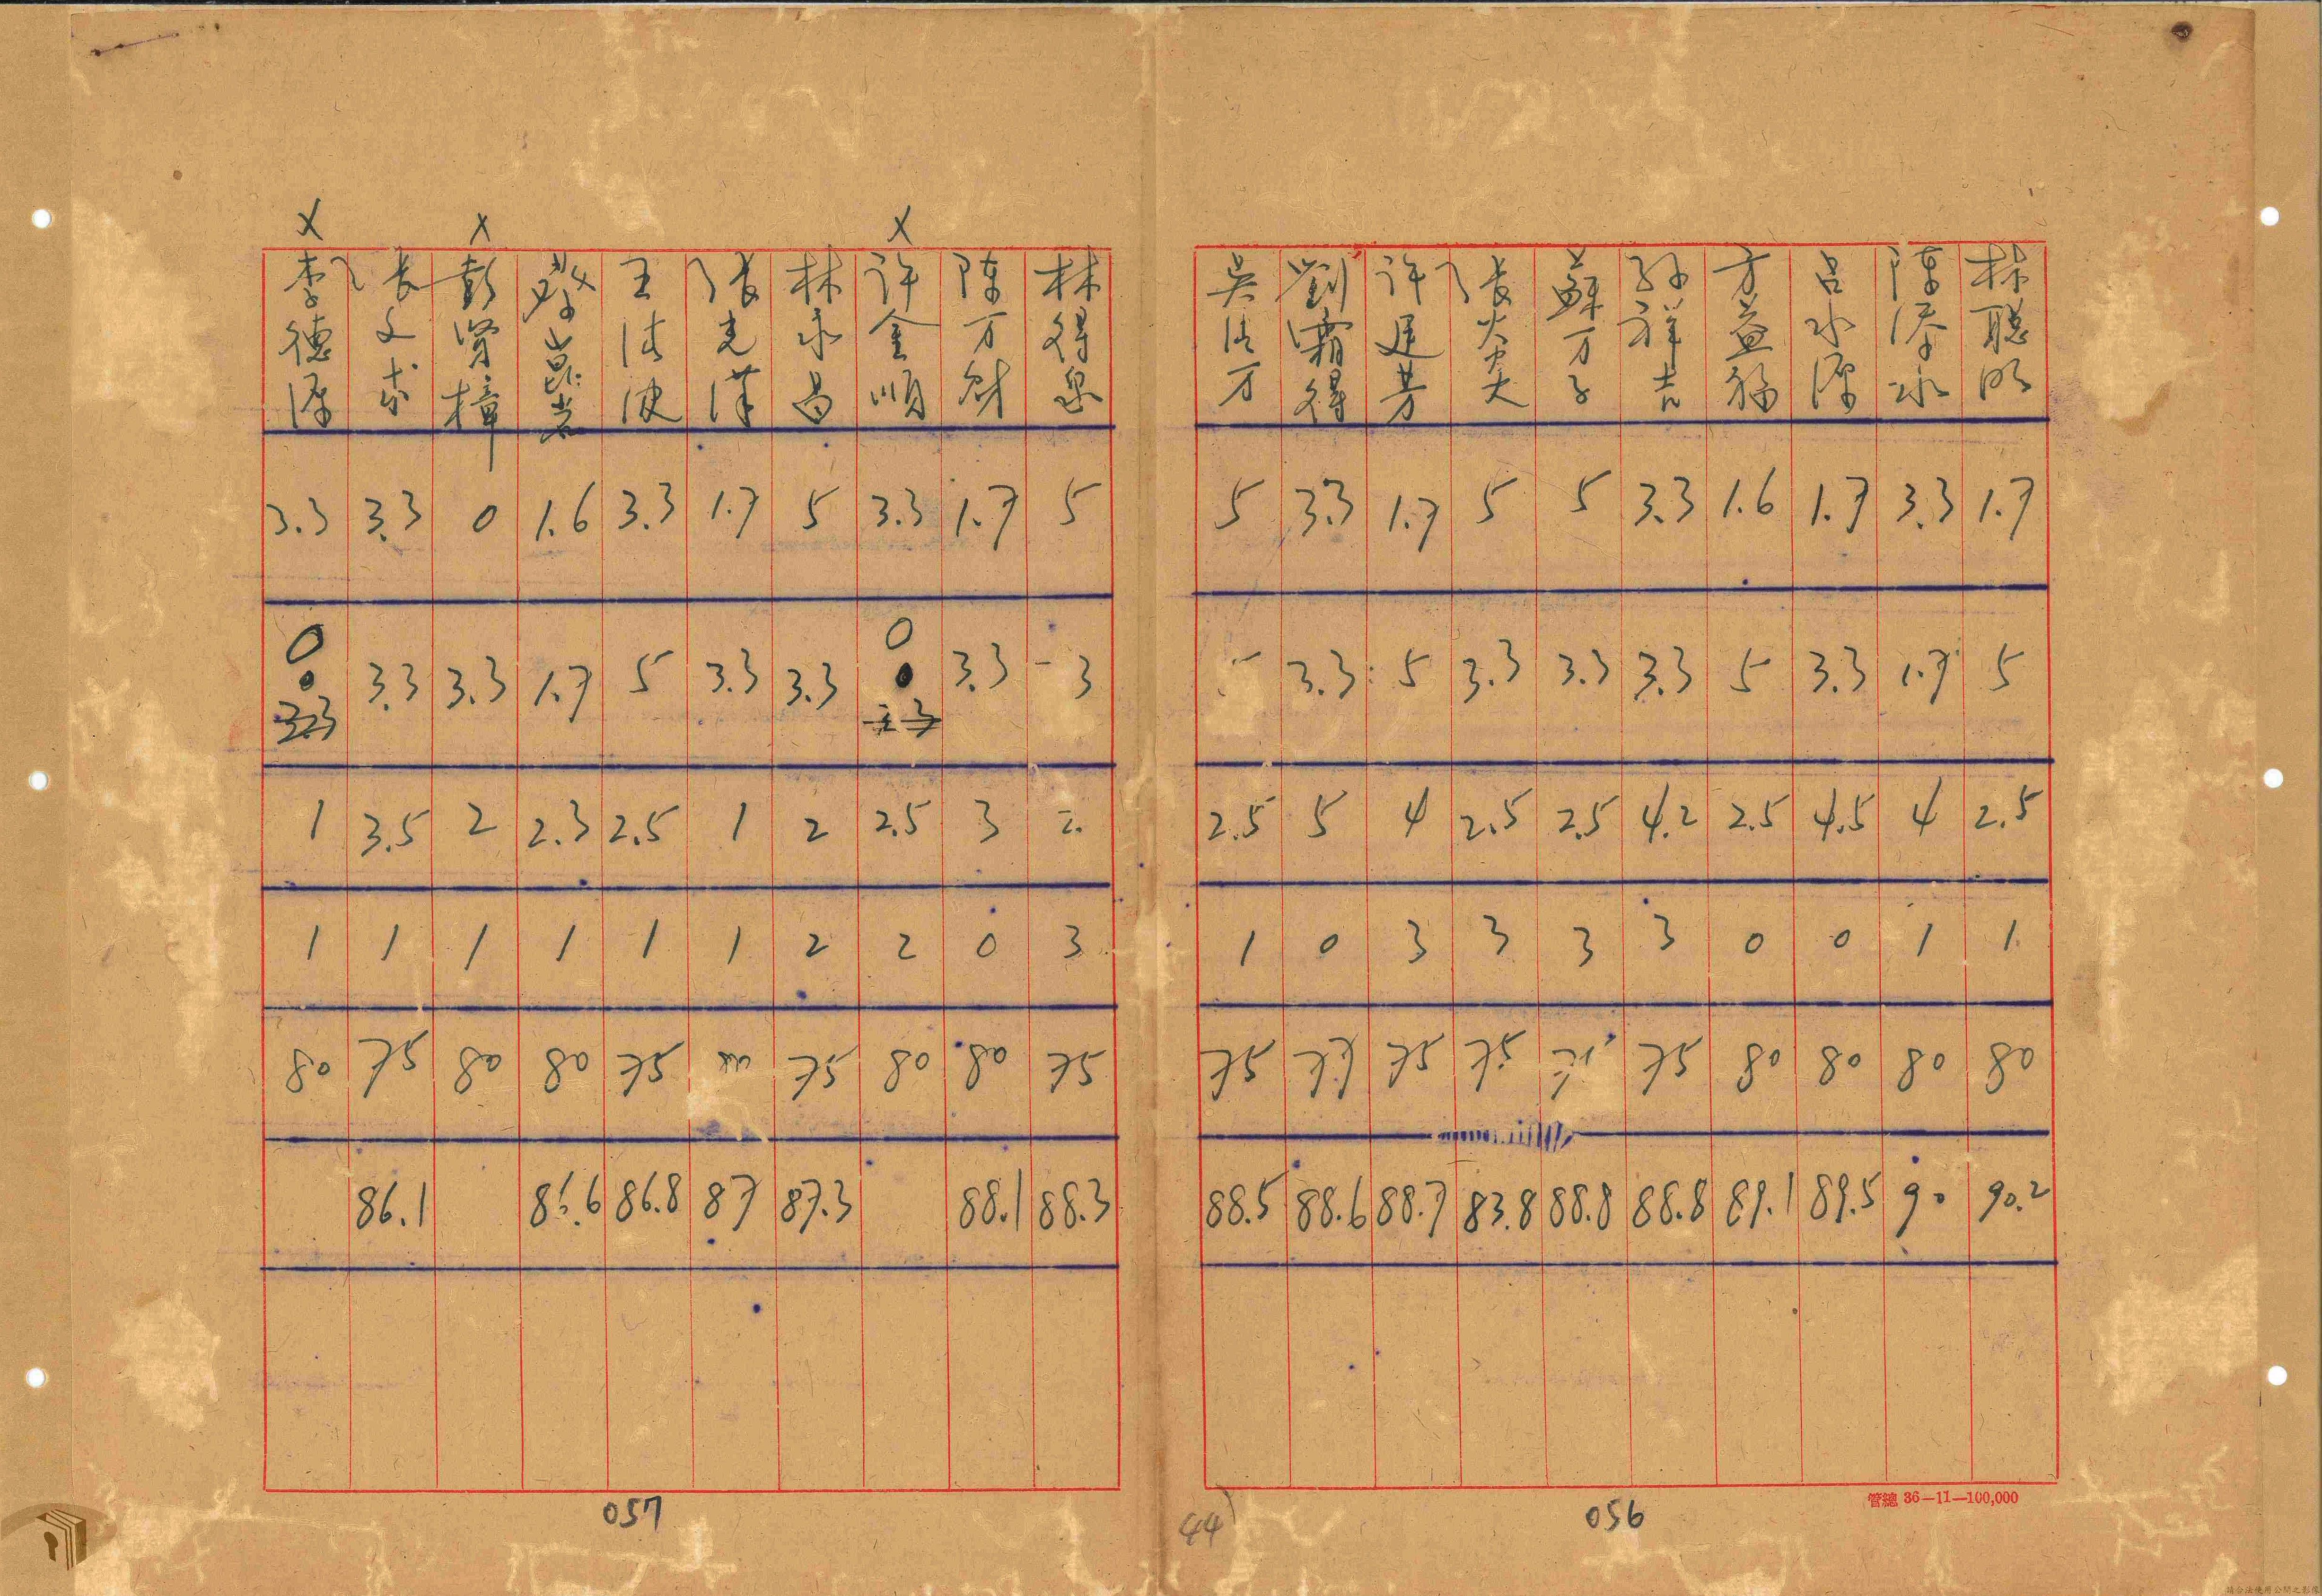 林聰明 1.7 5 2.5 1 80 90.2
陳添水 3.3 1.7 4 1 80 90
呂水源 1.7 3.3 4.5 0 80 89.5
方益 1.6 5 2.5 0 80 89.1
孫祥吉 3.3 3.3 4.2 3 75 88.8
蘇万子 5 3.3 2.5 3 88.8
張火炎 5 3.3 2.5 3 75 83.8
許進芳 1.7 5 4 3 75 88.7
劉霜得 3.3 3.3 5 0 88.6
吳清万 5 2.5 1 75 88.5
管總 36—11—100,000
056
44
林得泉 5 3 3 75 88.3
陈万財 1.7 3.3 3 0 80 88.1
X 許金順 3.3 0 2.5 2 80
林永昌 5 3.3 2 2 75 87.3
張克漢 1.7 3.3 1 1 87
王清波 3.3 5 2.5 1 75 86.8
崑岩 1.6 1.7 2.3 1 80 86.6
X 彭寳樟 0 3.3 2 1 80
張文求 3.3 3.3 3.5 1 75 86.1
X 李德源 3.3 0 3.3 1 1 80
057